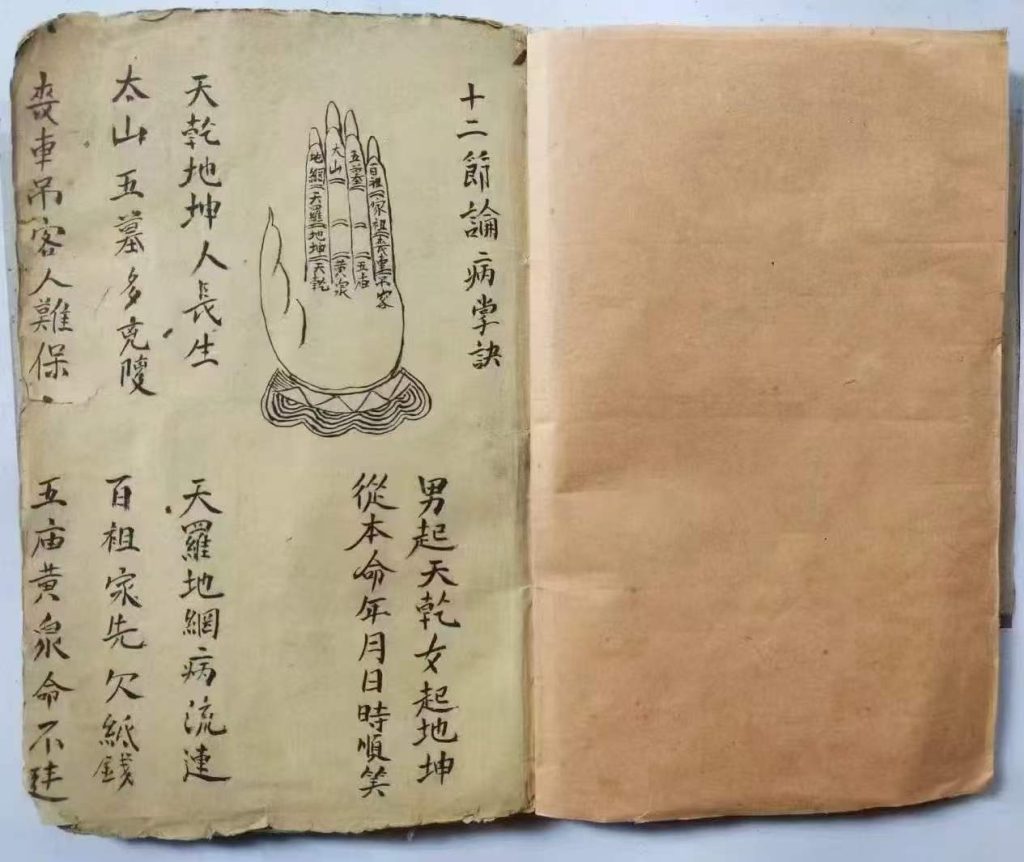 十二節論病掌訣
男起天乾女起地坤
從本命年月日時順笑
百祖
家祖
吊客
五墓
五庙
太山
黄泉
地網
天羅
地坤
天乾
天乾地坤人長生
天羅地網病流連
太山五墓多克陵
百祖家先欠紙錢
喪車吊客人難保
五庙黄泉命不